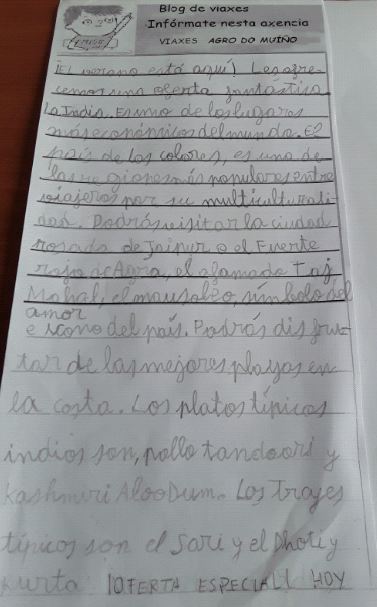 Blog de viaxes
Infórmate nesta axencia
VIAXES AGRO DO MUIÑO
¡El verano está aquí! Les ofre-
cemos una oferta fantastica
La India. Es uno de los lugares
más económicos del mundo. El
país de los colores, es una de
las regiones más populares entre
viajeros por su multiculturali
dad. Podrás visitar la ciudad
rosada de Jaipur o el Fuerte
rojo de Agra, el afamado Taj
Mahal, el mausoleo, símbolo del
amor
e icono del país. Podrás disfru-
tar de las mejores playas en
la costa. Los platos típicos
indios son, pollo tandoori y
Kashmiri Aloo Dum. Los Trajes
típicos son el Sari y el Dhoti y
Kurta ¡OFERTA ESPECIAL! HOY